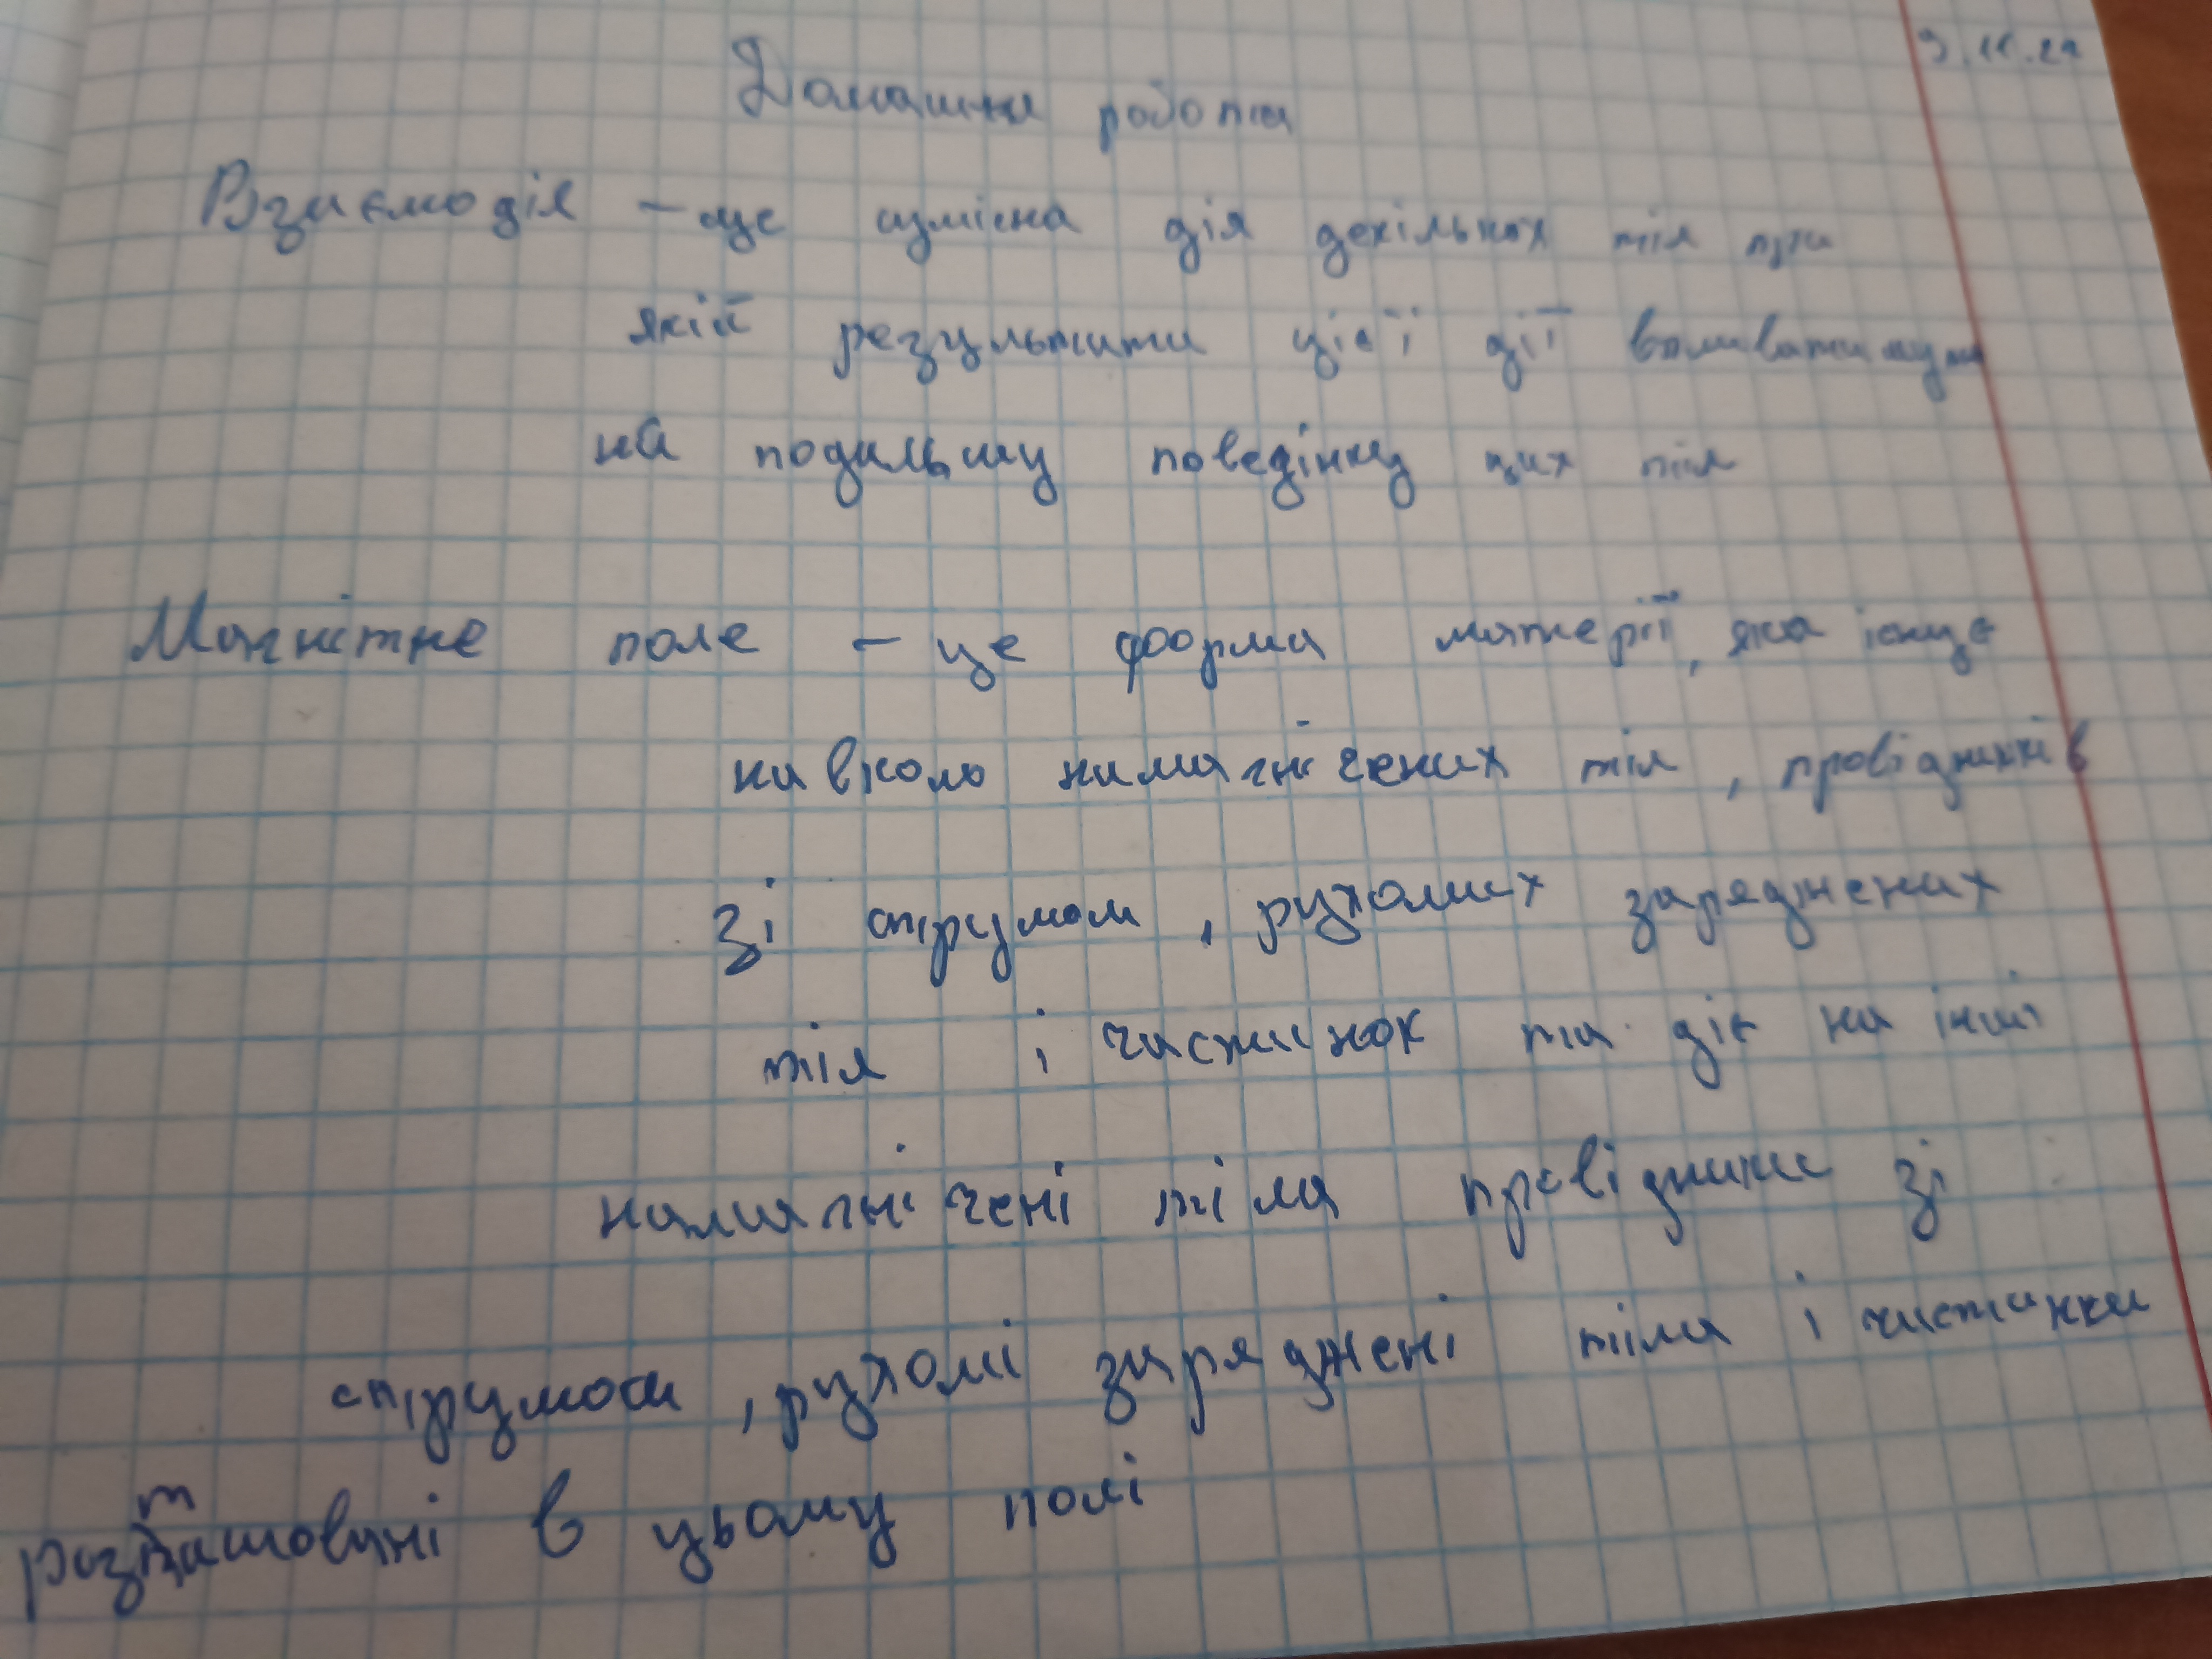 9.11.22
Домашня робота
Взаємодія – це сумісна дія декількох тіл при
якій результати цієї дії впливатимуть
на подальшу поведінку цих тіл
Магнітне поле – це форма матерії, яка існує
навколо намагнічених тіл, провідників
зі струмом, рухомих заряджених
тіл і частинок та діє на інші
намагнічені тіла провідники зі
струмом, рухомі заряджені тіла і частинки
розташовані в цьому полі